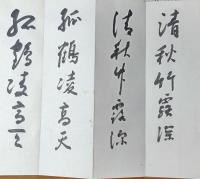 清秋竹露深
清秋竹露深
孤鶴凌高天
孤鶴凌高天